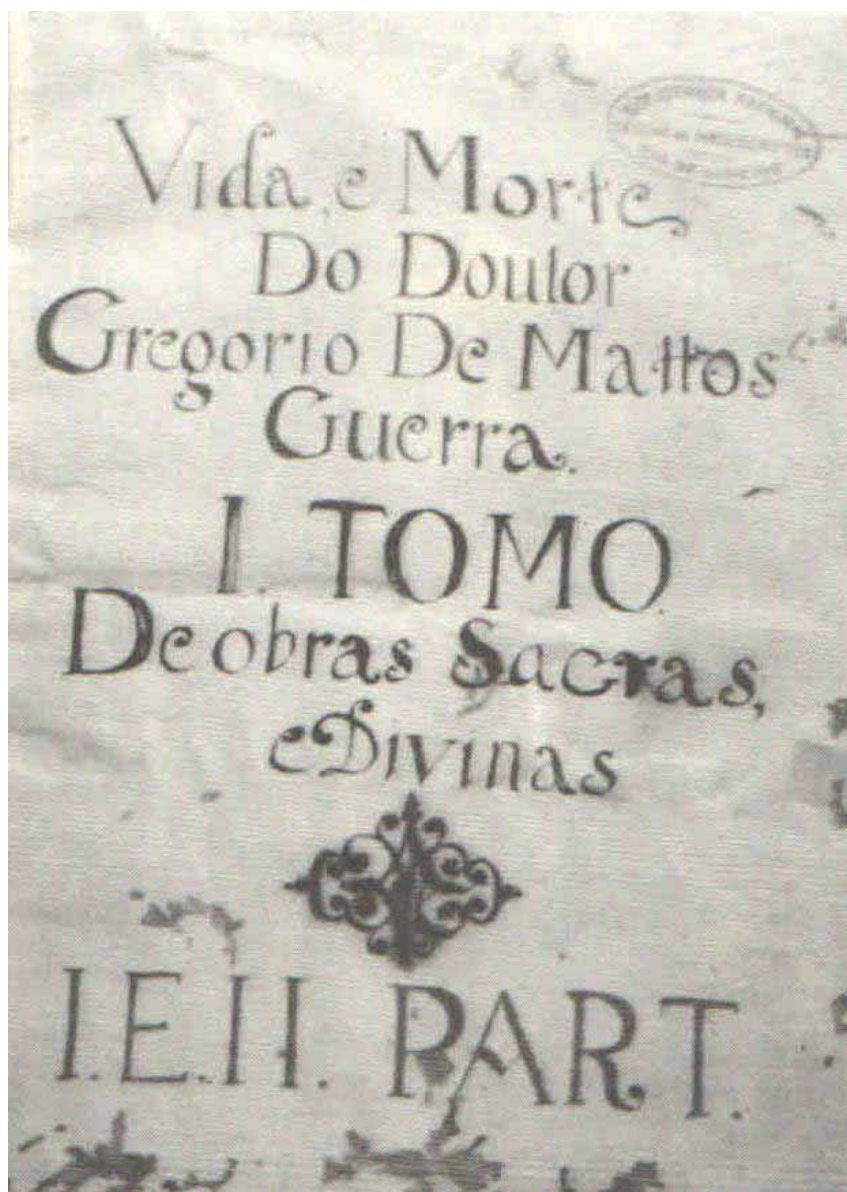 Vida, e Morte
Do Doutor
Gregorio De Mattos
Guerra.
I. TOMO.
De obras Sacras,
e Divinas
I. E. II. PART.